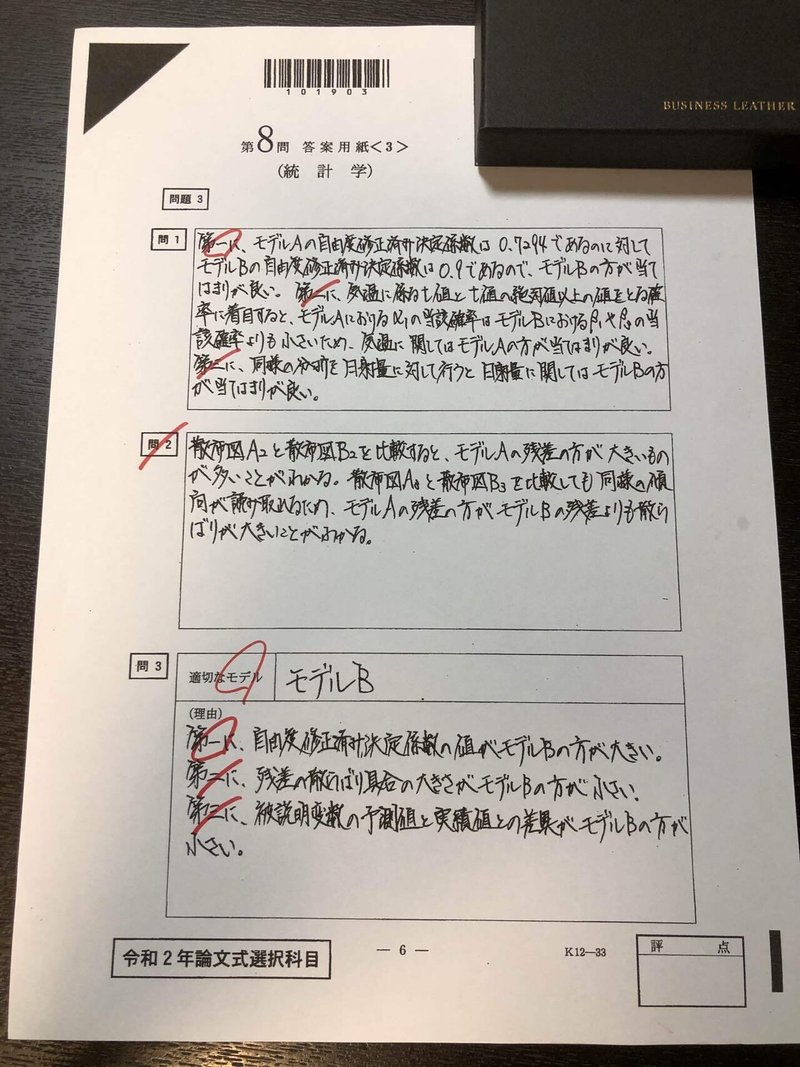 BUSINESS LEATHER
101903
第8問 答案用紙<3>
(統計学)
問題3
問1
第一に、モデルAの自由度修正済み決定係数は0.7294であるのに対して
モデルBの自由度修正済み決定係数は0.9であるので、モデルBの方が当て
はまりが良い。第二に、気温に係るt値とt値の絶対値以上の値をとる確
率に着目すると、モデルAにおけるα₁の当該確率はモデルBにおけるβ₁やβ₂の当
該確率よりも小さいため、気温に関してはモデルAの方が当てはまりが良い。
第三に、同様の分析を日射量に対して行うと日射量に関してはモデルBの方
が当てはまりが良い。
問2
散布図A₂と散布図B₂を比較すると、モデルAの残差の方が大きいもの
が多いことがわかる。散布図A₃と散布図B₃を比較しても同様の傾
向が読み取れるため、モデルAの残差の方がモデルBの残差よりも散ら
ばりが大きいことがわかる。
問3
適切なモデル モデルB
(理由)
第一に、自由度修正済み決定係数の値がモデルBの方が大きい。
第二に、残差の散らばり具合の大きさがモデルBの方が小さい。
第三に、被説明変数の予測値と実績値との差異がモデルBの方が
小さい。
令和2年論文式選択科目
— 6 —
K12—33
評点